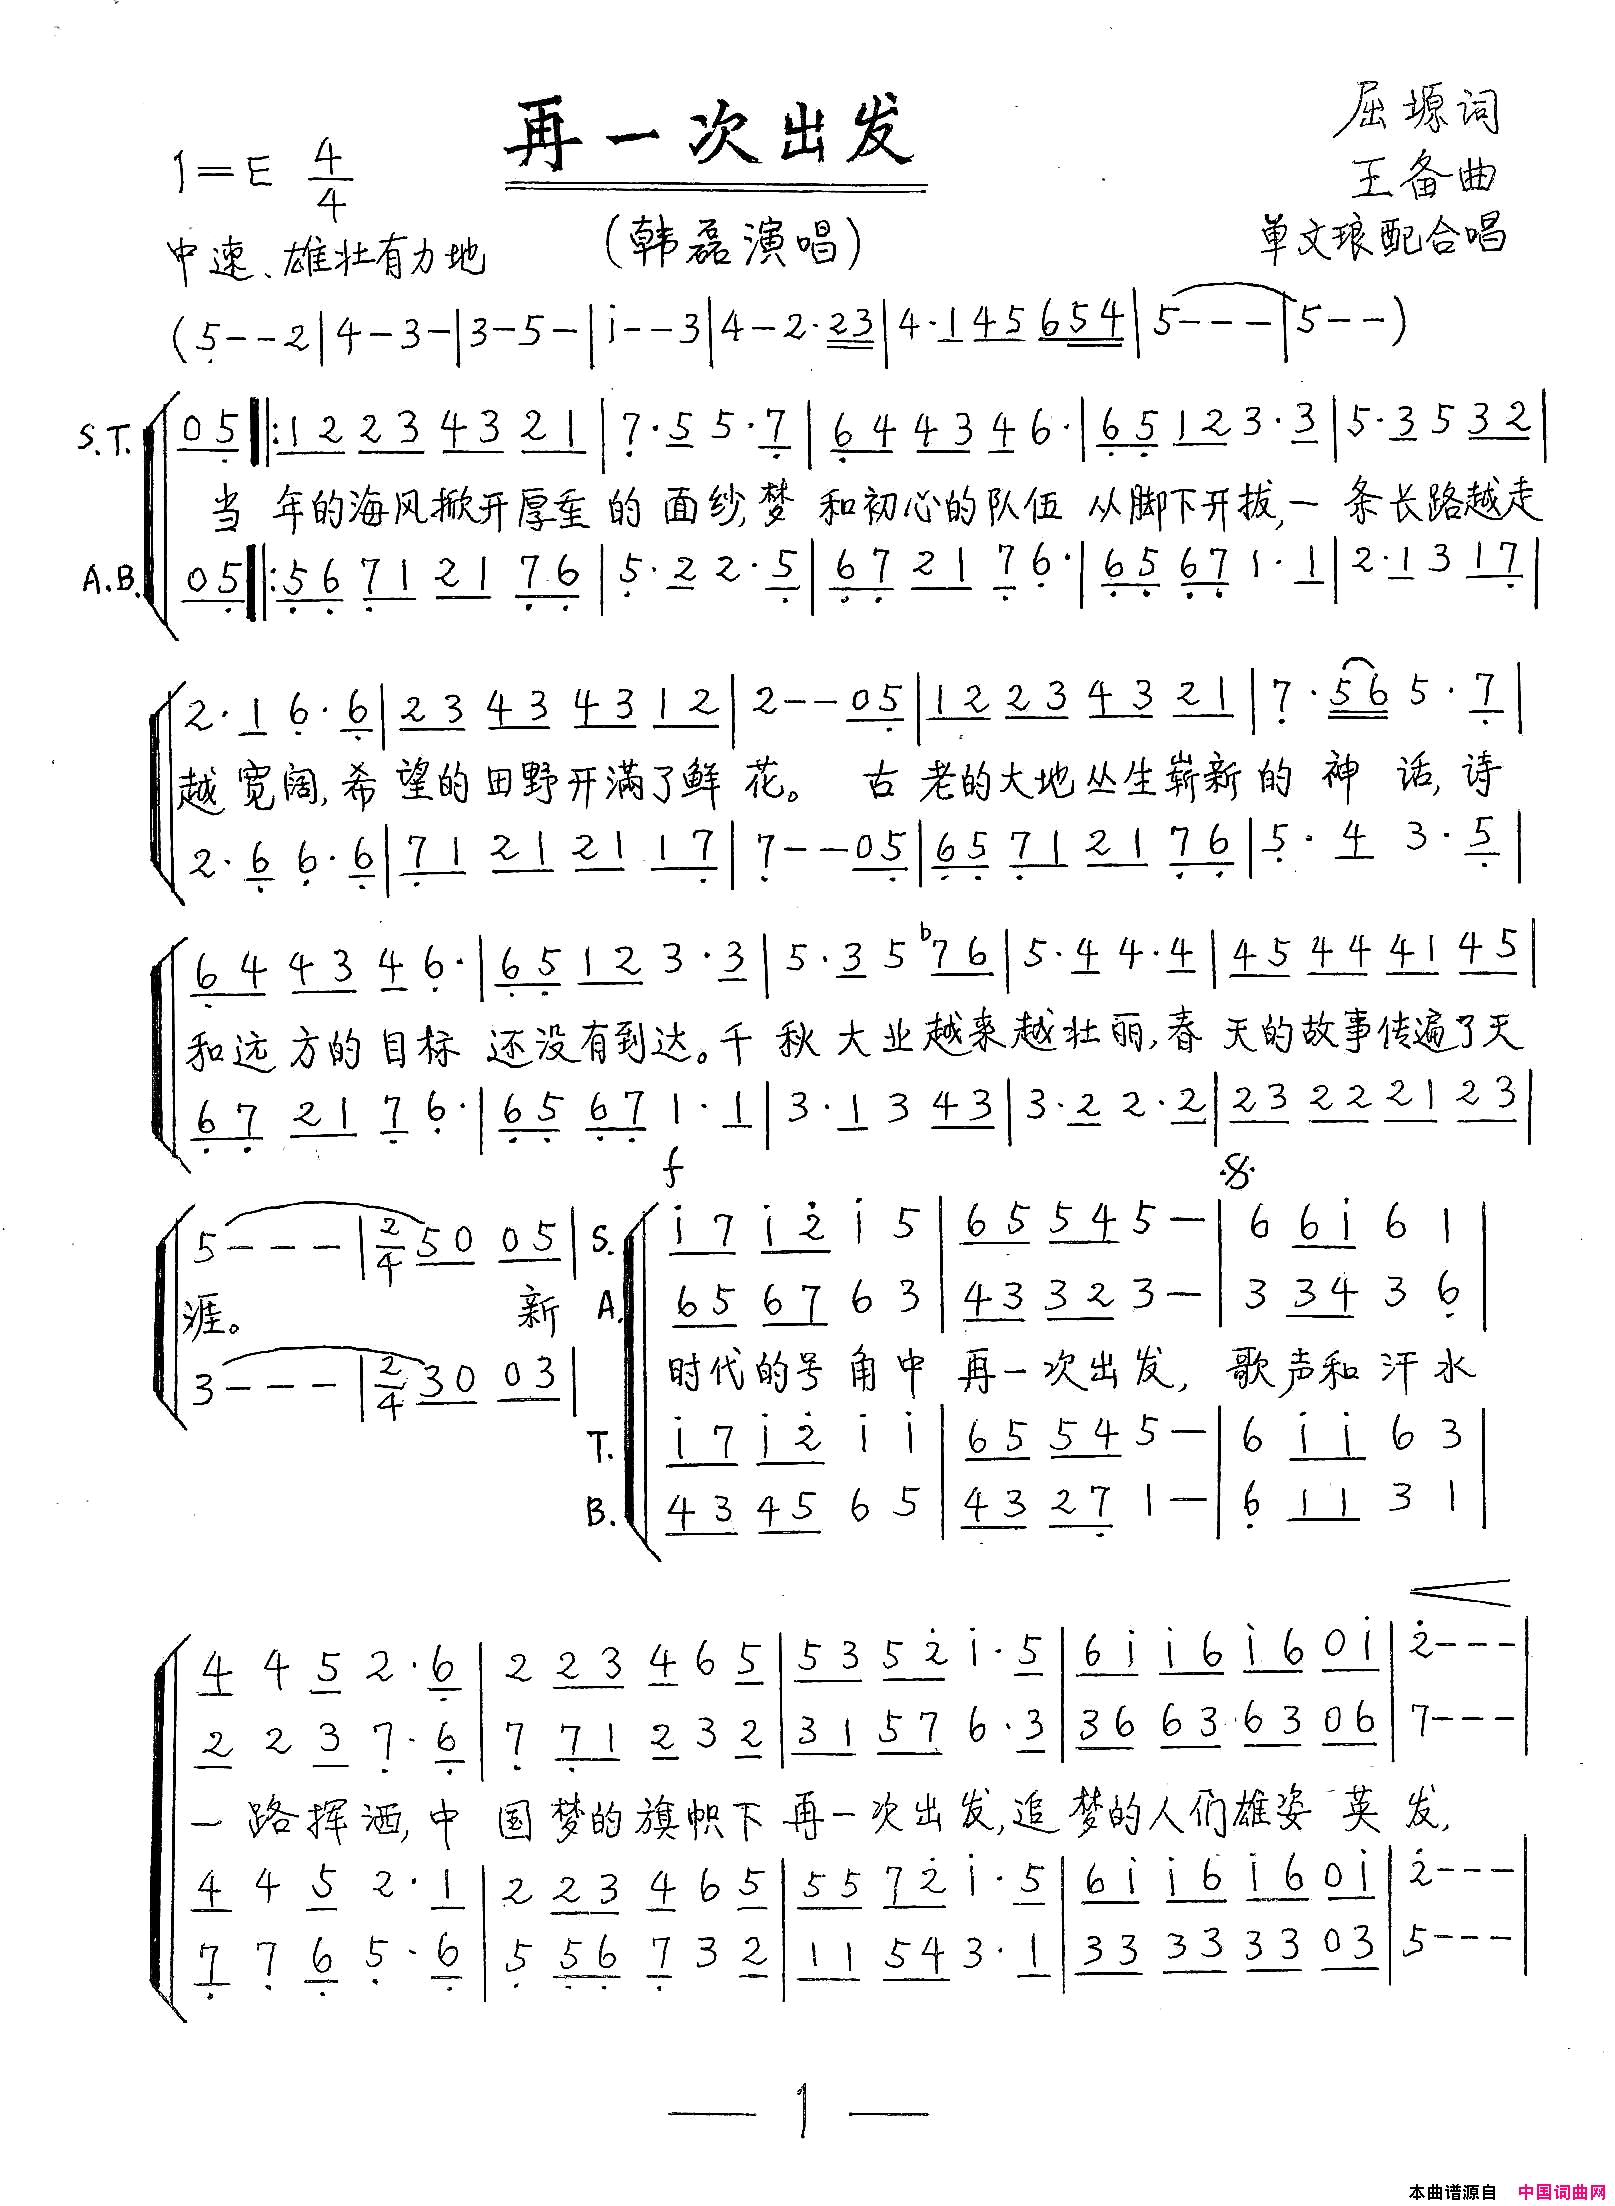 再一次出发
屈塬词
王备曲
单文琅配合唱
1=E 4/4
中速、雄壮有力地
(韩磊演唱)
(5--2|4-3-|3-5-|i--3|4-2·23|4·145654|5---|5--)
S.T. 05‖:12234321|7·55·7|644346·|65123·3|5·3532|
当年的海风掀开厚重的面纱,梦和初心的队伍从脚下开拔,一条长路越走
A.B. 05‖:56712176|5·22·5|672176·|65671·1|2·1317|
2·16·6|23434312|2--05|12234321|7·565·7|
越宽阔,希望的田野开满了鲜花。古老的大地丛生崭新的神话,诗
2·66·6|71212117|7--05|65712176|5·43·5|
644346·|65123·3|5·35♭76|5·44·4|45444145|
和远方的目标还没有到达。千秋大业越来越壮丽,春天的故事传遍了天
672176·|65671·1|3·1343|3·22·2|23222123|
f
5---|2/4 5005|
涯。新
3---|2/4 3003|
S. i7i2i5|65545-|66i61|
A. 656763|43323-|33436|
时代的号角中再一次出发,歌声和汗水
T. i7i2ii|65545-|6ii63|
B. 434565|43271-|61131|
4452·6|223465|5352i·5|6ii6i60i|2---|
2237·6|771232|31576·3|36636306|7---|
一路挥洒,中国梦的旗帜下再一次出发,追梦的人们雄姿英发,
4452·1|223465|5572i·5|6ii6i60i|2---|
7765·6|556732|11543·1|33333303|5---|
— 1 —
本曲谱源自 中国词曲网